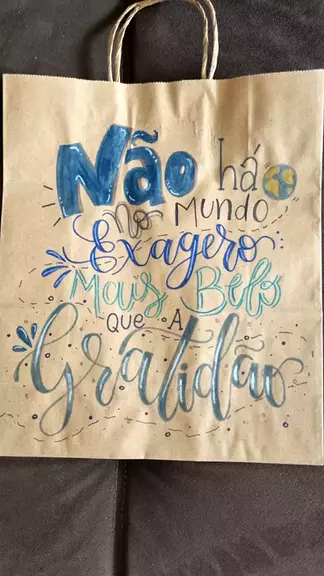 Não há
no MUNDO
Exagero
Mais Belo
QUE A
Gratidão